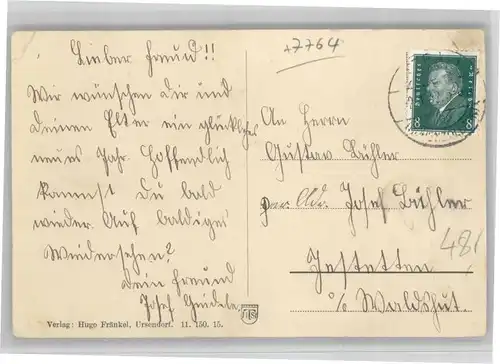 +7764
Lieber Freund!!
Wir wünschen Dir und
Deinen Elter ein glückliches
neues Jahr. Hoffendlich
kannst Du bald
wieder. Auf baldiges
Wiedersehen?
Dein Freund
Josef
An Herrn
Gustav Bühler
per. Adr. Josef Bühler
Jestetten
b/ Waldshut.
481
8 8
Verlag: Hugo Fränkel, Ursendorf. 11. 150. 15.